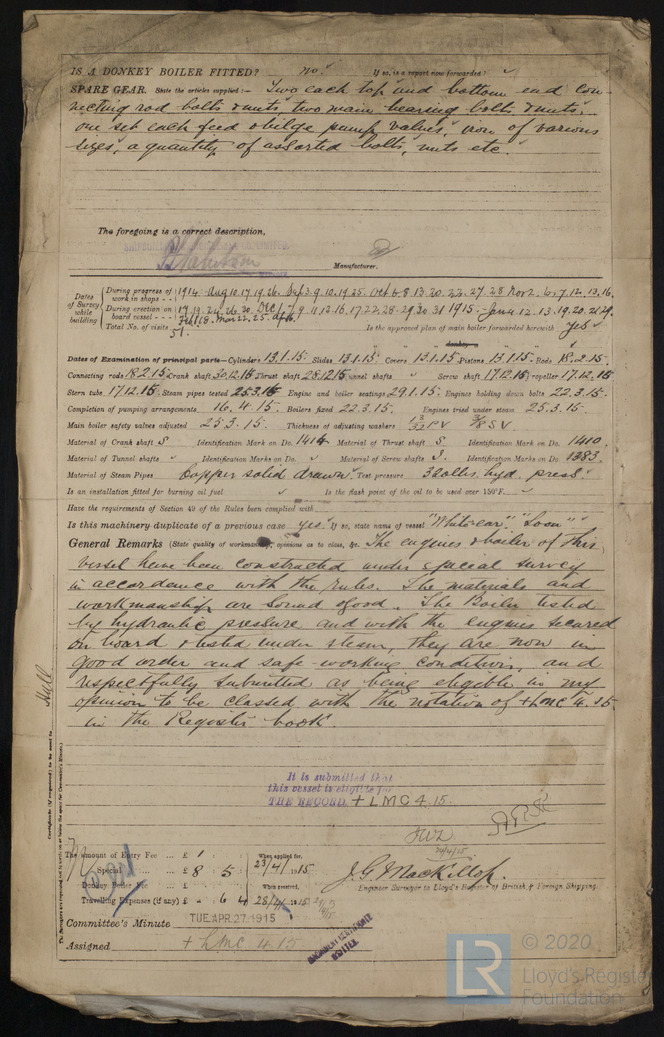 IS A DONKEY BOILER FITTED? no. If so, is a report now forwarded?
SPARE GEAR. State the articles supplied:— Two each top and bottom end con-
necting rod bolts & nuts, two main bearing bolts & nuts,
one set each feed & bilge pump valves, iron of various
sizes, a quantity of assorted bolts, nuts etc.
The foregoing is a correct description,
Manufacturer.
Dates of Survey while building
During progress of work in shops - - 1914 Aug 10. 17. 19. 26. Sep 3. 9. 10. 19. 25. Oct 6. 8. 13. 20. 22. 27. 28 Nov 2. 6. 7. 12. 13. 16.
During erection on board vessel - - - 17. 19. 24. 26. 30. Dec 1. 7. 9. 11. 12. 16. 17. 22. 28. 29. 30. 31 1915 - Jan 4. 12. 13. 19. 20. 21. 29.
Feb 18. Mar 22. 25. Apr 16.
Total No. of visits 51. Is the approved plan of main boiler forwarded herewith yes
" " " donkey " " "
Dates of Examination of principal parts—Cylinders 13.1.15. Slides 13.1.15. Covers 13.1.15. Pistons 13.1.15. Rods 18.2.15.
Connecting rods 18.2.15. Crank shaft 30.12.15 Thrust shaft 28.12.15 Tunnel shafts " Screw shaft 17.12.15 Propeller 17.12.15
Stern tube 17.12.15 Steam pipes tested 25.3.15 Engine and boiler seatings 29.1.15. Engines holding down bolts 22.3.15.
Completion of pumping arrangements 16.4.15. Boilers fixed 22.3.15. Engines tried under steam 25.3.15.
Main boiler safety valves adjusted 25.3.15. Thickness of adjusting washers 13/32 P V 3/8 S V
Material of Crank shaft S Identification Mark on Do. 1414 Material of Thrust shaft S. Identification Mark on Do. 1410.
Material of Tunnel shafts " Identification Marks on Do. " Material of Screw shaft S. Identification Marks on Do. 1383.
Material of Steam Pipes Copper solid drawn. Test pressure 320 lbs. hyd. press.
Is an installation fitted for burning oil fuel Is the flash point of the oil to be used over 150°F.
Have the requirements of Section 49 of the Rules been complied with
Is this machinery duplicate of a previous case yes. If so, state name of vessel "Whitecar" "Loon"
General Remarks (State quality of workmanship, opinions as to class, &c. The engines & boiler of this
vessel have been constructed under special survey
in accordance with the rules. The materials and
workmanship are sound & good. The Boiler tested
by hydraulic pressure and with the engines secured
on board & tested under steam, they are now in
good order and safe working condition, and
respectfully submitted as being eligible in my
opinion to be classed with the notation of + LMC 4.15.
in the Register book.
It is submitted that
this vessel is eligible for
THE RECORD. + LMC 4.15.
JWD
24/4/15
The amount of Entry Fee ... £ 1 When applied for,
Special ... £ 8 5 23/4/1915
Donkey Boiler Fee ... £ When received,
Travelling Expenses (if any) £ 6 4 28/4/1915
J.G. Mackillop.
Engineer Surveyor to Lloyd's Register of British & Foreign Shipping.
Committee's Minute TUE. APR. 27. 1915
Assigned + LMC 4.15
MACHINERY CERTIFICATE
WRITTEN
Hull
Certificate (if required) to be sent to
The Surveyors are requested not to write on or below the space for Committee's Minute.
LR
© 2020
Lloyd's Register
Foundation